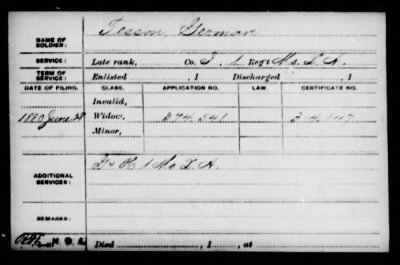 NAME OF SOLDIER: Tesson, German
SERVICE: Late rank, Co. I, 1 Reg't Mo. L. A.
TERM OF SERVICE: Enlisted , 1 Discharged , 1
DATE OF FILING. CLASS. APPLICATION NO. LAW. CERTIFICATE NO.
Invalid,
1880 June 28 Widow, 374.541 304.147
Minor,
ADDITIONAL SERVICES: F & K 1 Mo L. A.
REMARKS:
Died , 1 , at